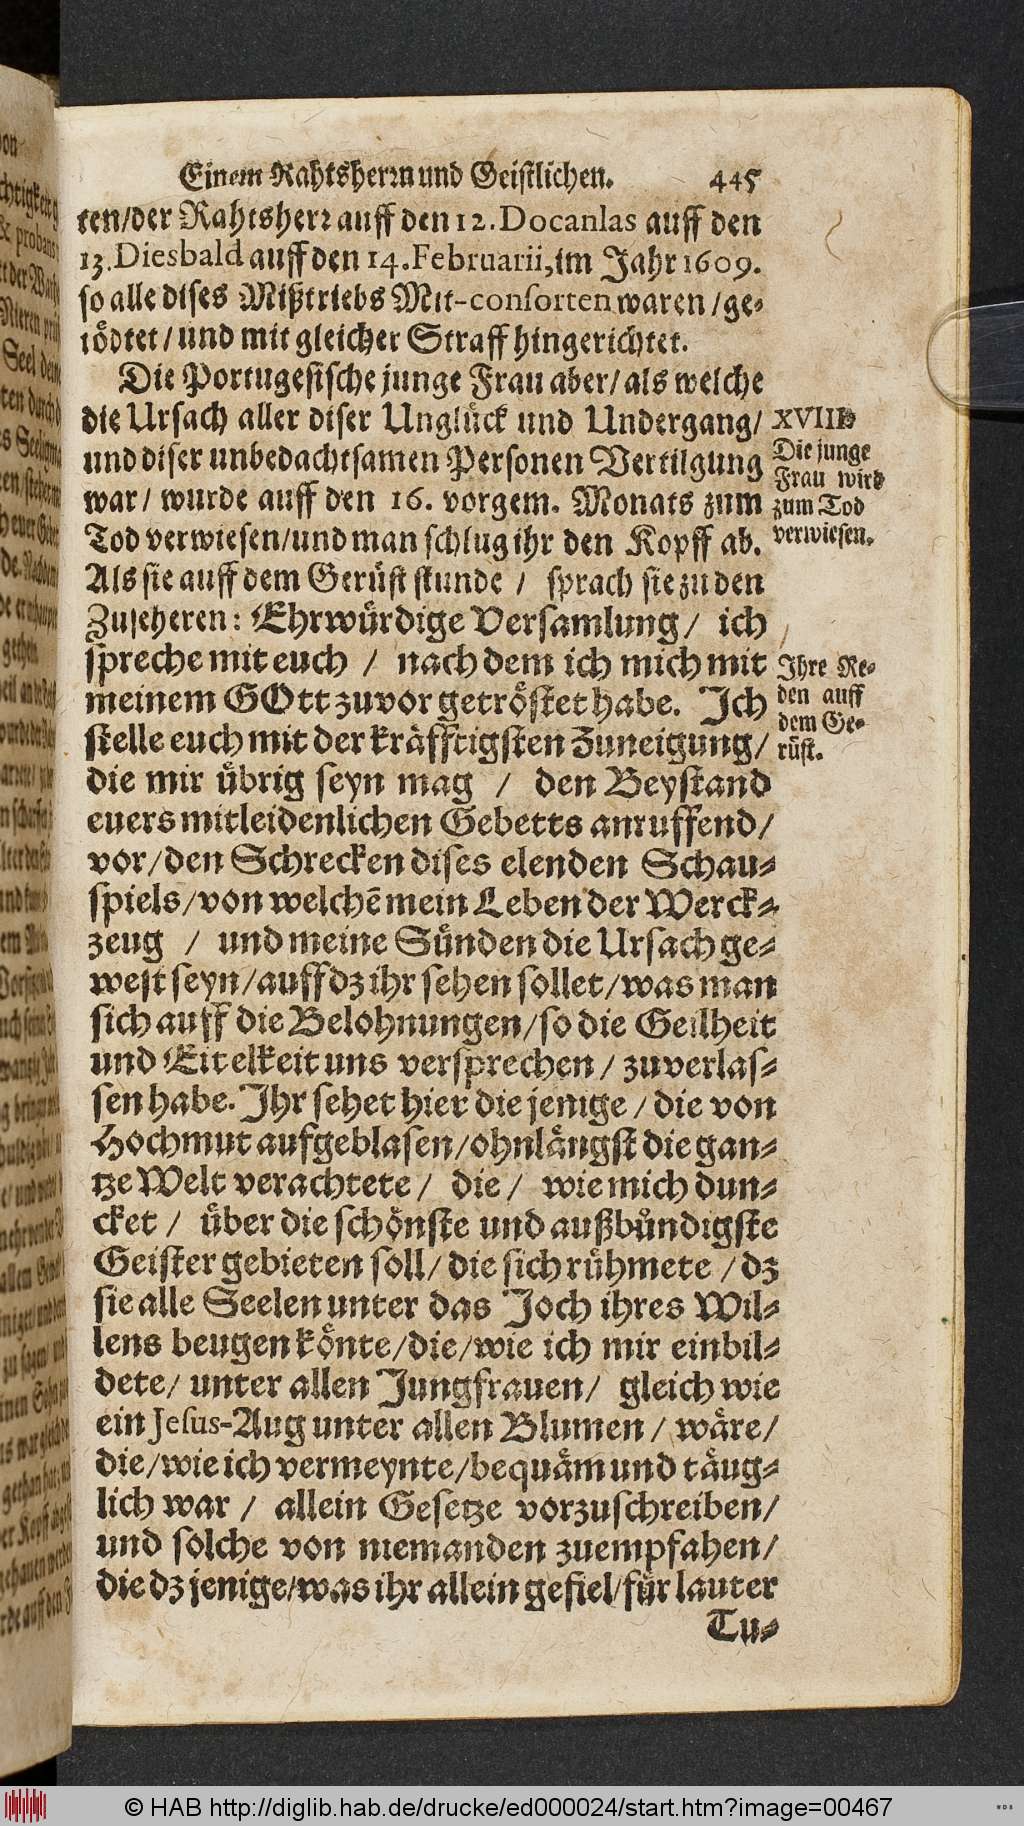 Einem Rahtsherrn und Geistlichen. 445
ten/der Rahtsherr auff den 12. Docanlas auff den
13. Diesbald auff den 14. Februarii, im Jahr 1609.
so alle dises Mißtriebs Mit-consorten waren/ge-
tödtet/und mit gleicher Straff hingerichtet.
Die Portugesische junge Frau aber/als welche
die Ursach aller diser Unglück und Undergang/
und diser unbedachtsamen Personen Vertilgung
war/ wurde auff den 16. vorgem. Monats zum
Tod verwiesen/und man schlug ihr den Kopff ab.
Als sie auff dem Gerüst stunde / sprach sie zu den
Zuseheren: Ehrwürdige Versamlung/ ich
spreche mit euch / nach dem ich mich mit
meinem GOtt zuvor getröstet habe. Ich
stelle euch mit der kräfftigsten Zuneigung/
die mir übrig seyn mag / den Beystand
euers mitleidenlichen Gebetts anruffend/
vor/den Schrecken dises elenden Schau-
spiels/von welchē mein Leben der Werck-
zeug / und meine Sünden die Ursach ge-
west seyn/auff dz ihr sehen sollet/was man
sich auff die Belohnungen/so die Geilheit
und Eitelkeit uns versprechen/ zuverlas-
sen habe. Ihr sehet hier die jenige/die von
Hochmut aufgeblasen/ohnlängst die gan-
tze Welt verachtete/ die/ wie mich dun-
cket / über die schönste und außbůndigste
Geister gebieten soll/die sich rühmete/dz
sie alle Seelen unter das Joch ihres Wil-
lens beugen könte/die/wie ich mir einbil-
dete/ unter allen Jungfrauen/ gleich wie
ein Jesus-Aug unter allen Blumen/ wäre/
die/wie ich vermeynte/bequäm und täug-
lich war / allein Gesetze vorzuschreiben/
und solche von niemanden zuempfahen/
die dz jenige/was ihr allein gefiel/für lauter
Tu-
XVIII.
Die junge
Frau wird
zum Tod
verwiesen.
Ihre Re-
den auff
dem Ge-
rüst.
© HAB http://diglib.hab.de/drucke/ed000024/start.htm?image=00467